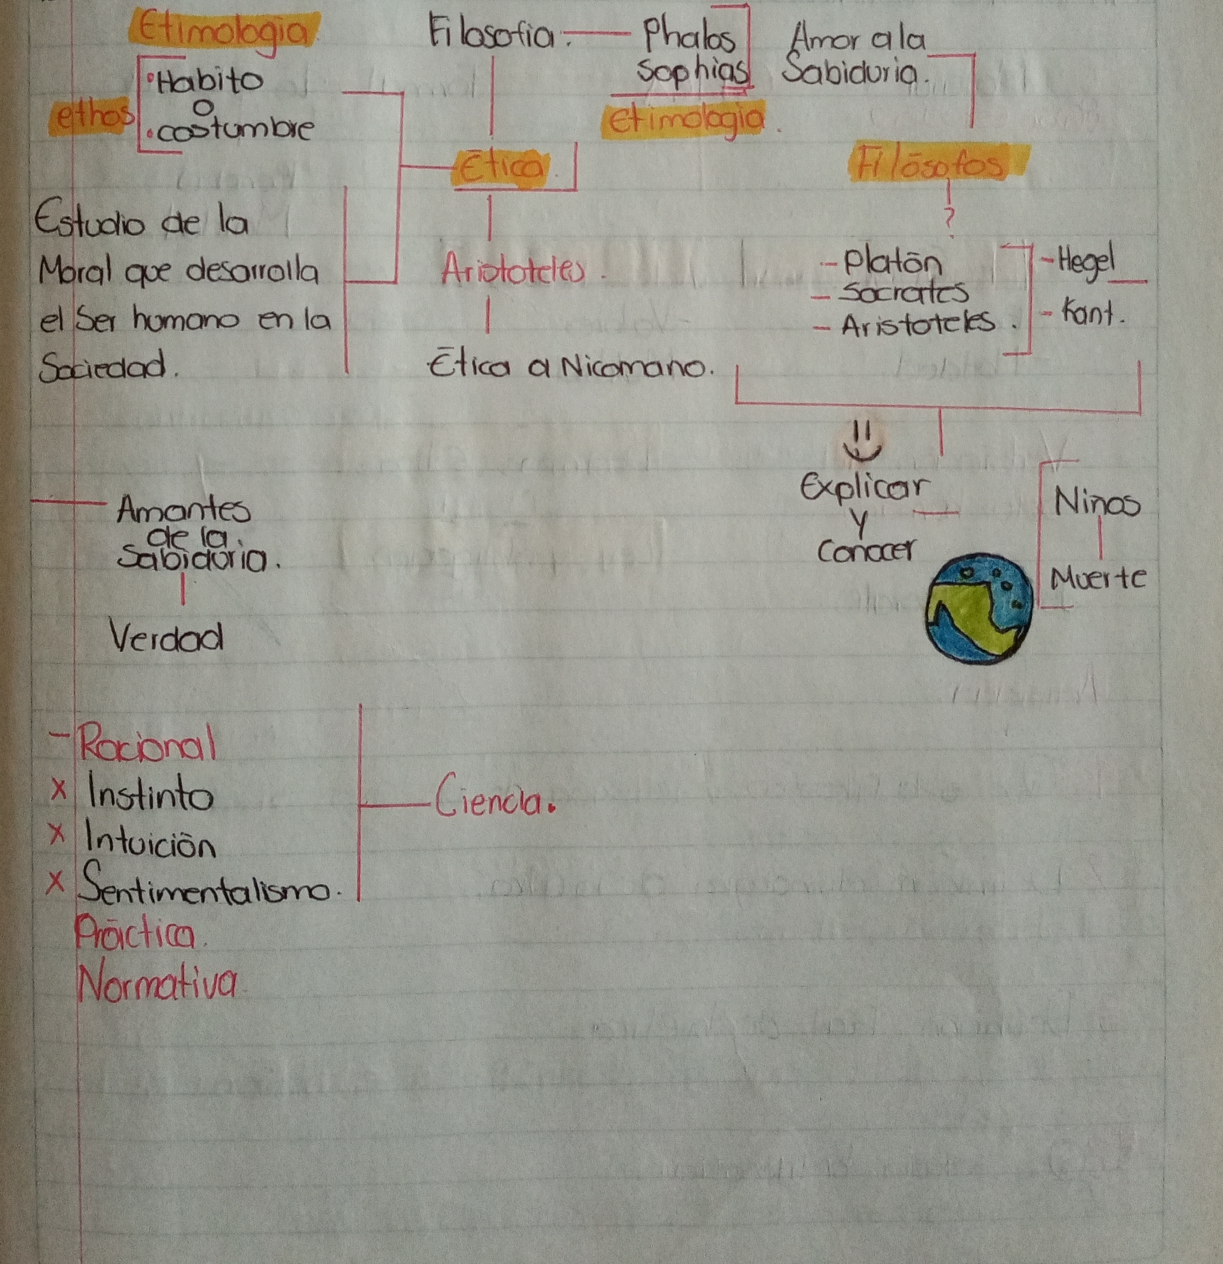 Etimologia
•Habito
o
•costumbre
ethos
Filosofia:
Phalos
Sophias
etimologia.
Amor a la
Sabiduria.
Etica.
Filósofos
?
Estudio de la
Moral que desarrolla
el Ser humano en la
Sociedad.
Aristoteles.
Ética a Nicomano.
- Platón
- Socrates
- Aristoteles.
- Hegel
- Kant.
Explicar
y
Conocer
Ninos
Muerte
Amantes
de la
Sabiduria.
Verdad
- Racional
x Instinto
x Intuición
x Sentimentalismo.
Práctica.
Normativa
Ciencia.